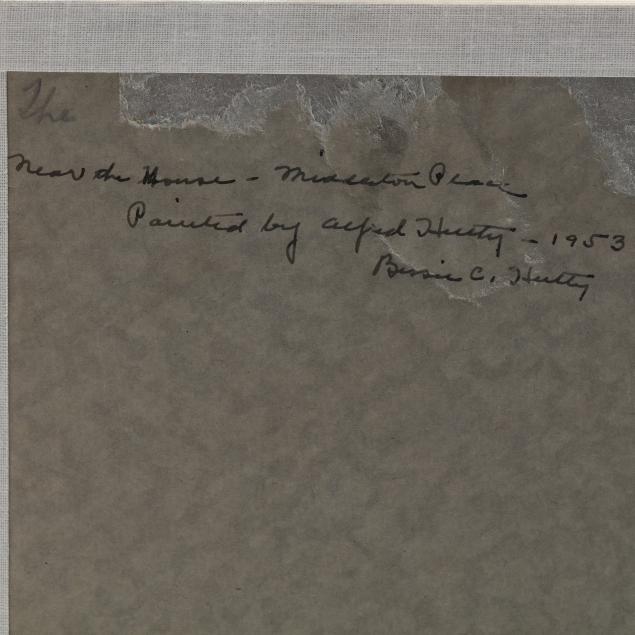 The
Near the House - Middleton Place
Painted by Alfred Hutty - 1953
Bessie C. Hutty